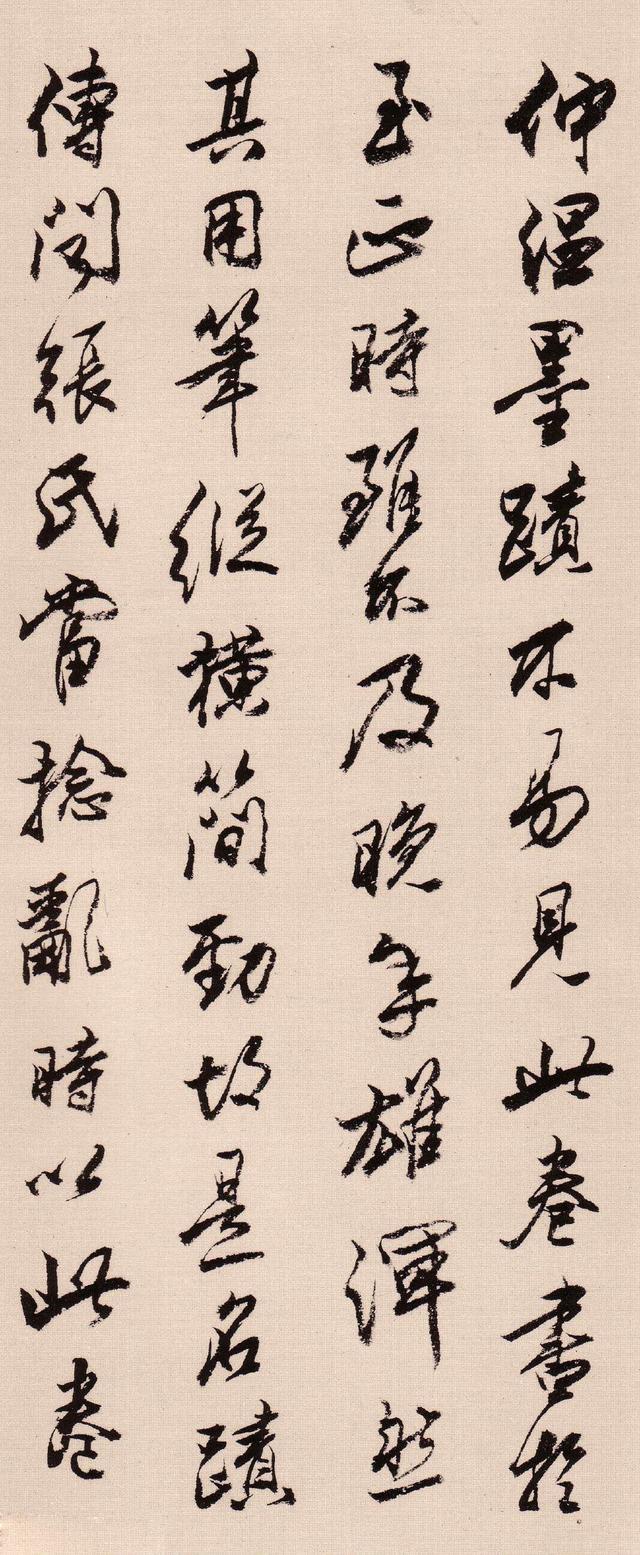 仲温墨蹟不易見此卷書於
至正時雖不及晚年雄渾然
其用筆縱横簡勁故是名蹟
傳聞張氏當捻亂時以此卷